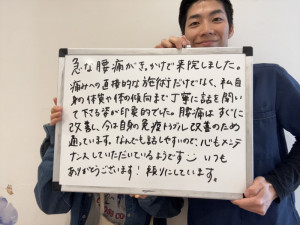 急な腰痛がきっかけで来院しました。
痛みへの直接的な施術だけでなく、私自
身の体質や体の傾向まで丁寧に話を聞い
て下さる姿が印象的でした。腰痛はすぐに
改善し、今は自身の免疫トラブル改善のため
通っています。なんでも話しやすいので、心もメンテ
ナンスしていただいているようです いつも
ありがとうございます！頼りにしています。